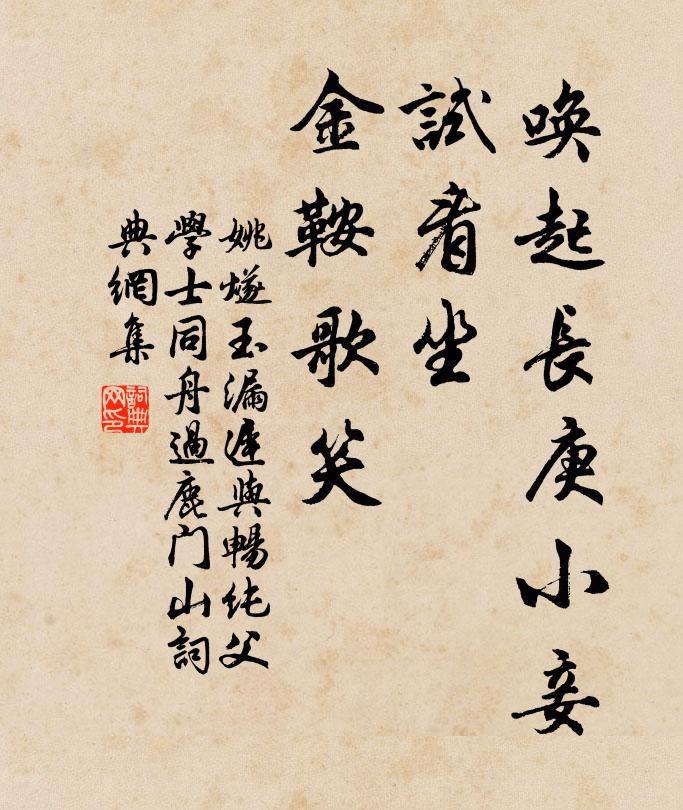 喚起長庚小妾
試看坐
金鞍歌笑
姚燧玉漏遲與暢純父
學士同舟過鹿門山詞
典網集
詞典
网印